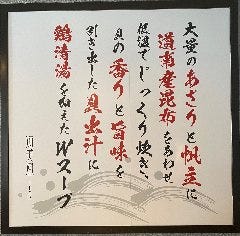 大量のあさりと帆立に
道南産昆布をあわせ
低温でじっくり炊き、
貝の香りと旨味を
引き出した貝出汁に
鶏清湯を加えたWスープ